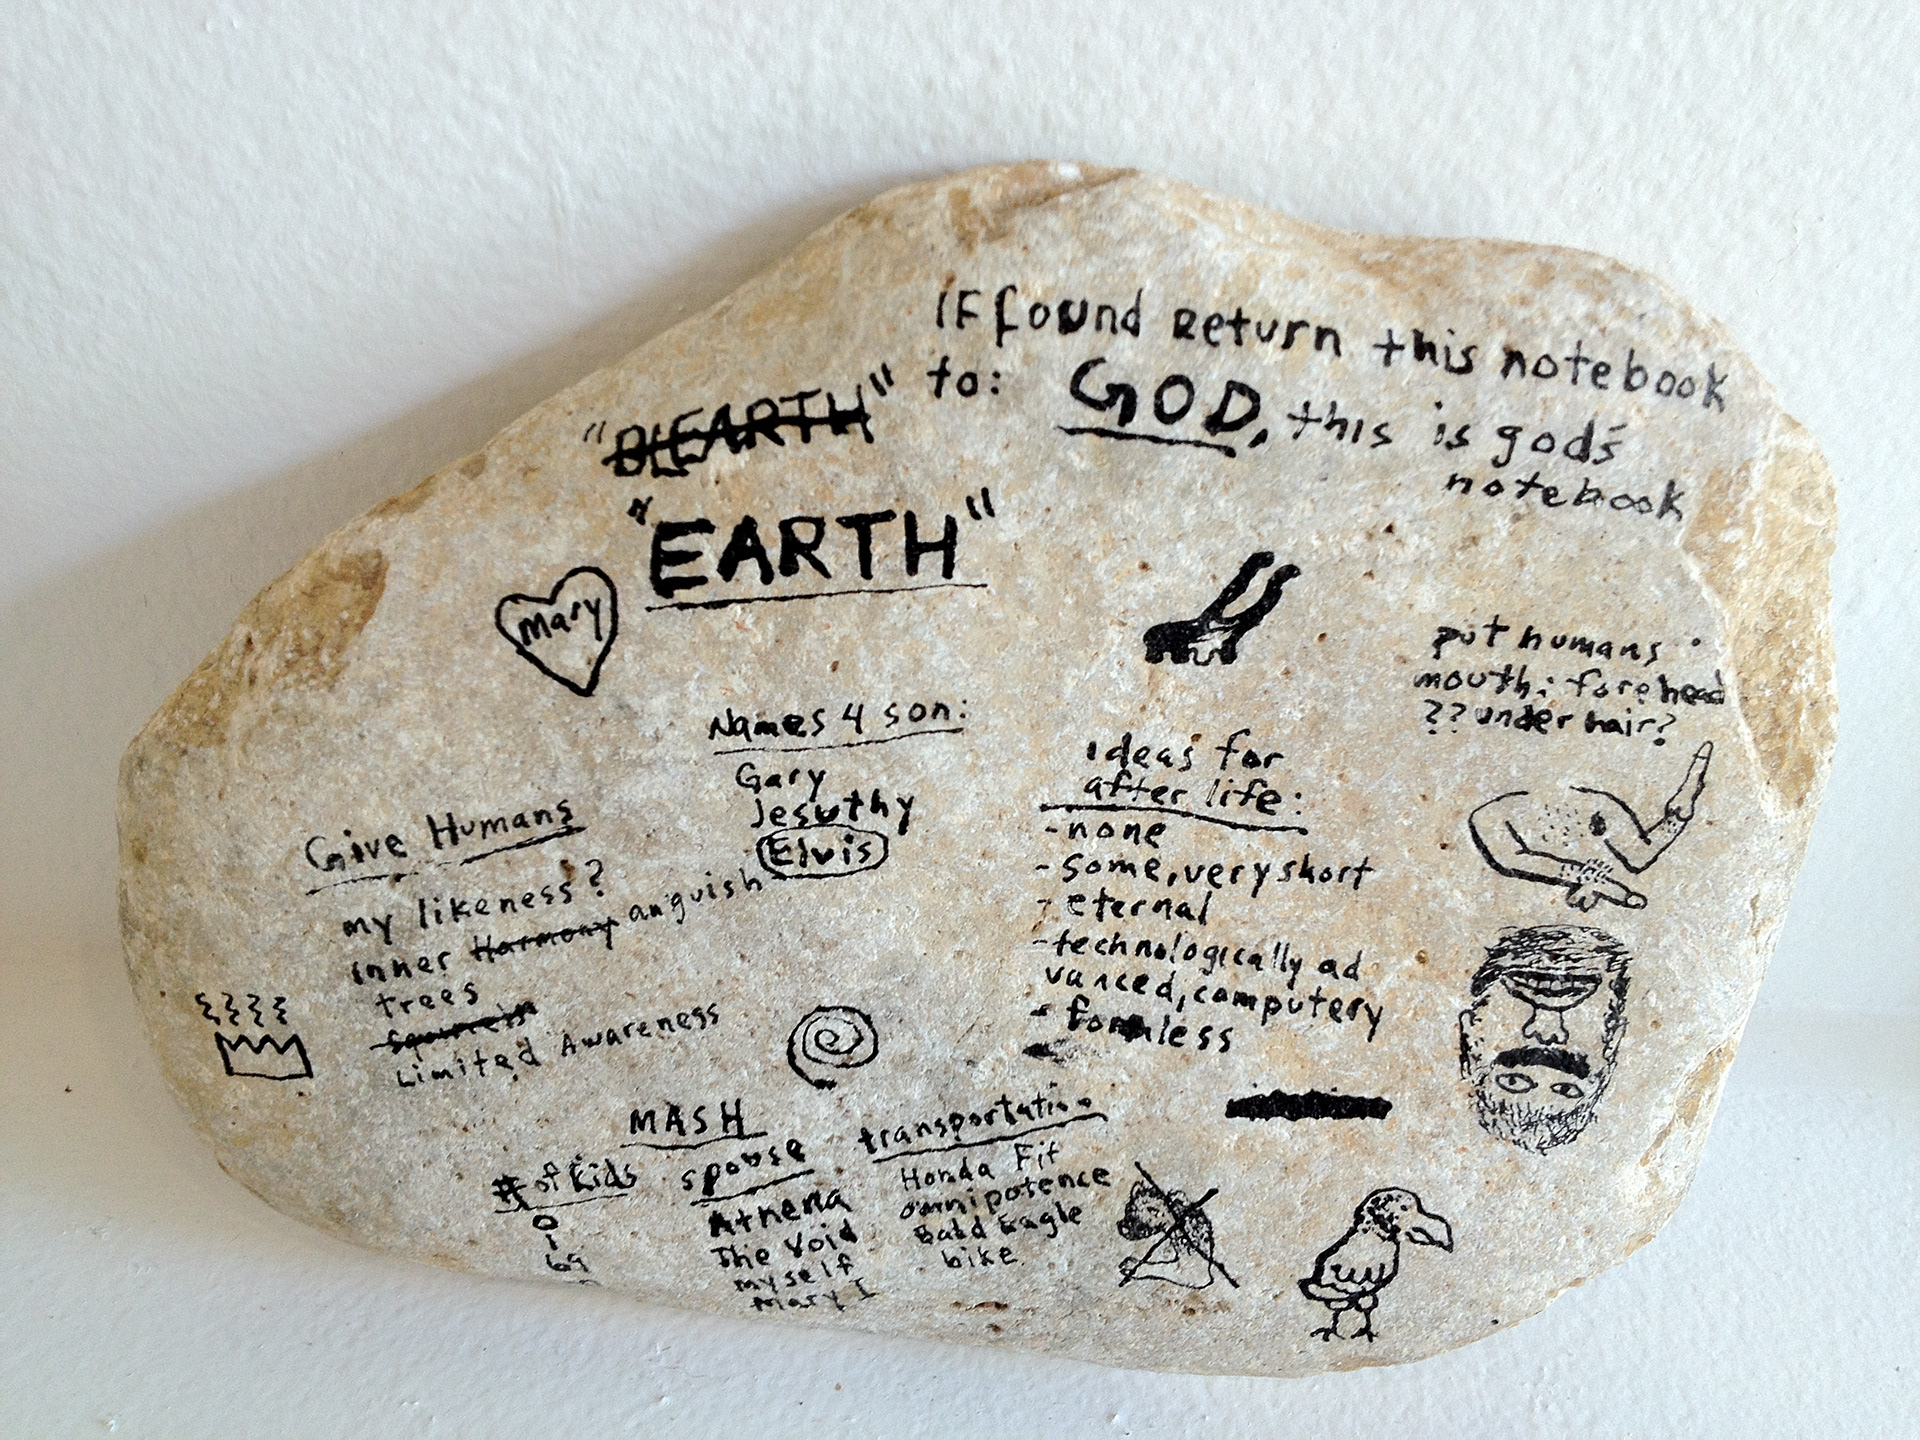 If found return this notebook
to: GOD, this is god's
notebook
"BLEARTH"
"EARTH"
Mary
put humans
mouth: forehead
?? under hair?
Names 4 son:
Gary
Jesuthy
Elvis
Ideas for
after life:
- none
- some, very short
- eternal
- technologically ad
vanced, computery
- formless
Give Humans
my likeness?
inner Harmony anguish
trees
squirrels
Limited Awareness
MASH
# of kids
0
1
69
spouse
Athena
The Void
myself
Mary I
transportation
Honda Fit
omnipotence
Bald Eagle
bike